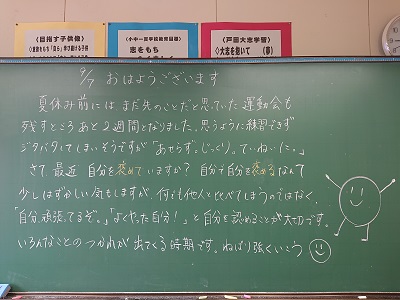 〈目指す子供像〉
〈小中一貫学校教育目標〉
志をもち
〈戸田大志学習〉
〈大志を抱いて
9/7 おはようございます
夏休み前にはまだ先のことだと思っていた運動会も
残すところあと2週間となりました。思うように練習できず
ジタバタしてしまいそうですが「あせらず。じっくり。ていねいに。」
さて、最近 自分を褒めていますか？自分で自分を褒めるなんて
少しはずかしい気もしますが、何でも他人と比べてしまうのではなく、
「自分、頑張ってるぞ。」「よくやった自分！」と自分を認めることが大切です。
いろんなことのつかれが出てくる時期です。ねばり強くいこう